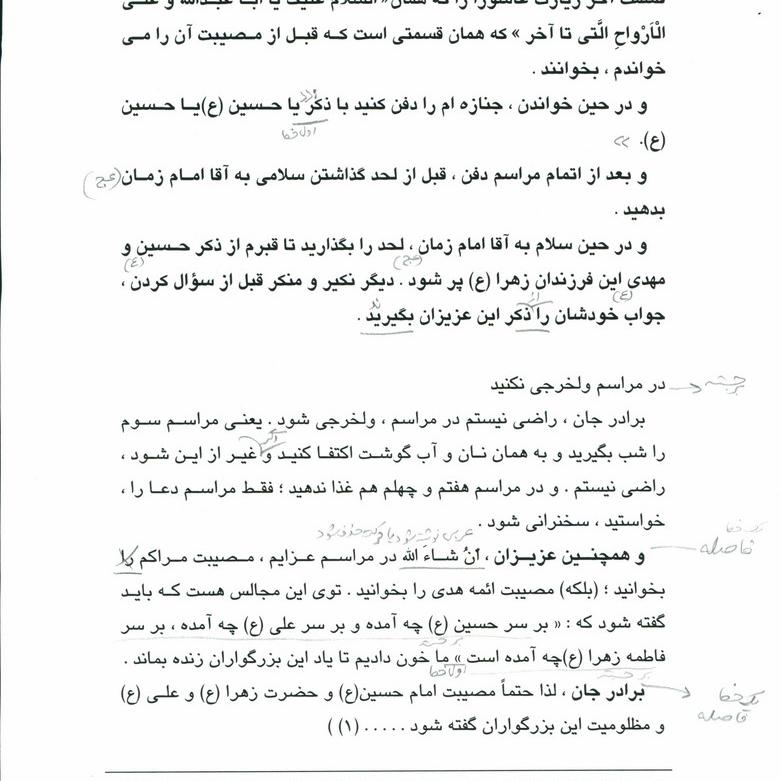 قسمت آخر زیارت عاشورا را که همان « السلام علیک یا ابا عبدالله و علی
الْاَرْواحِ الَّتی تا آخر » که همان قسمتی است که قبل از مصیبت آن را می
خواندم ، بخوانند .
و در حین خواندن ، جنازه ام را دفن کنید با ذکر یا حسین (ع)یا حسین
اول خط
(ع). »
و بعد از اتمام مراسم دفن ، قبل از لحد گذاشتن سلامی به آقا امام زمان (عج)
بدهید .
و در حین سلام به آقا امام زمان ، لحد را بگذارید تا قبرم از ذکر حسین و
(عج) (ع)
مهدی این فرزندان زهرا (ع) پر شود . دیگر نکیر و منکر قبل از سؤال کردن ،
(ع) از
جواب خودشان را ذکر این عزیزان بگیرید .
در مراسم ولخرجی نکنید برجسته
برادر جان ، راضی نیستم در مراسم ، ولخرجی شود . یعنی مراسم سوم
اگر
را شب بگیرید و به همان نان و آب گوشت اکتفا کنید و غیر از این شود ،
راضی نیستم . و در مراسم هفتم و چهلم هم غذا ندهید ؛ فقط مراسم دعا را ،
خواستید ، سخنرانی شود .
عربی نوشته شود یا حذف شود
یک خط فاصله
و همچنین عزیزان ، اَنْ شاءَ الله در مراسم عزایم ، مصیبت مراکم را
بخوانید ؛ (بلکه) مصیبت ائمه هدی را بخوانید . توی این مجالس هست که باید
گفته شود که : « بر سر حسین (ع) چه آمده و بر سر علی (ع) چه آمده ، بر سر
برجسته
فاطمه زهرا (ع)چه آمده است » ما خون دادیم تا یاد این بزرگواران زنده بماند .
برجسته اول خط
برادر جان ، لذا حتماً مصیبت امام حسین(ع) و حضرت زهرا (ع) و علی (ع)
یک خط فاصله
و مظلومیت این بزرگواران گفته شود ..... (۱) )